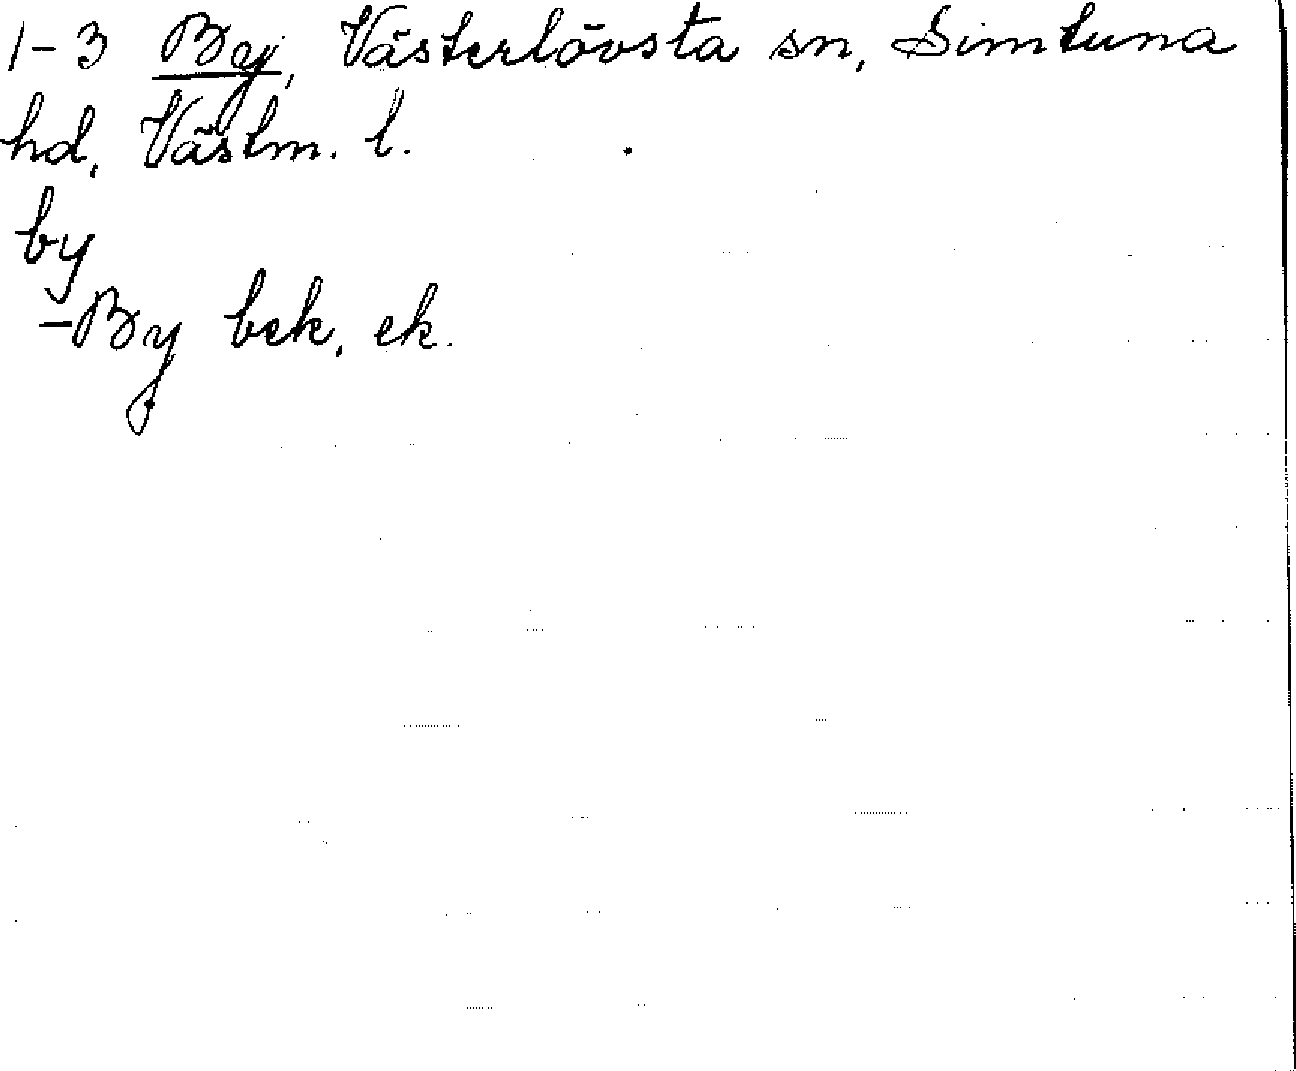 1-3 By, Västerlövsta sn, Simtuna
hd, Västm. l.
by
-By bek. ek.